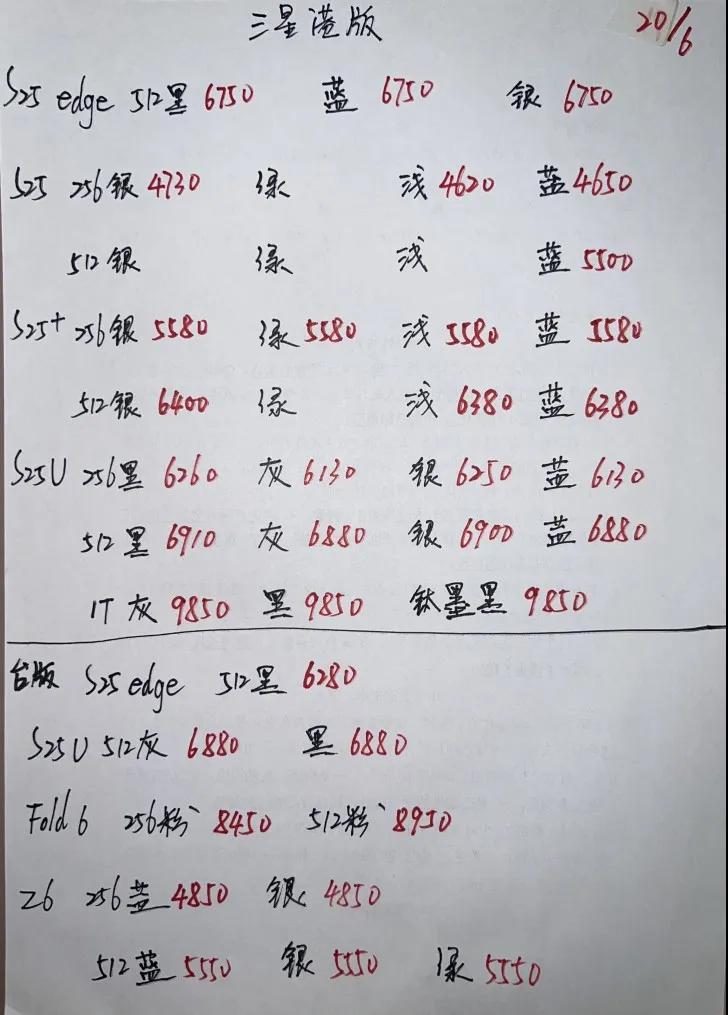 三星港版 20/6
S25 edge 512黑 6750 蓝 6750 银 6750
S25 256银 4730 绿 浅 4620 蓝 4650
512银 绿 浅 蓝 5500
S25+ 256银 5580 绿 5580 浅 5580 蓝 5580
512银 6400 绿 浅 6380 蓝 6380
S25U 256黑 6260 灰 6130 银 6250 蓝 6130
512黑 6910 灰 6880 银 6900 蓝 6880
1T 灰 9850 黑 9850 钛墨黑 9850
台版 S25 edge 512黑 6280
S25U 512灰 6880 黑 6880
Fold 6 256粉 8450 512粉 8950
Z6 256蓝 4850 银 4850
512蓝 5550 银 5550 绿 5550